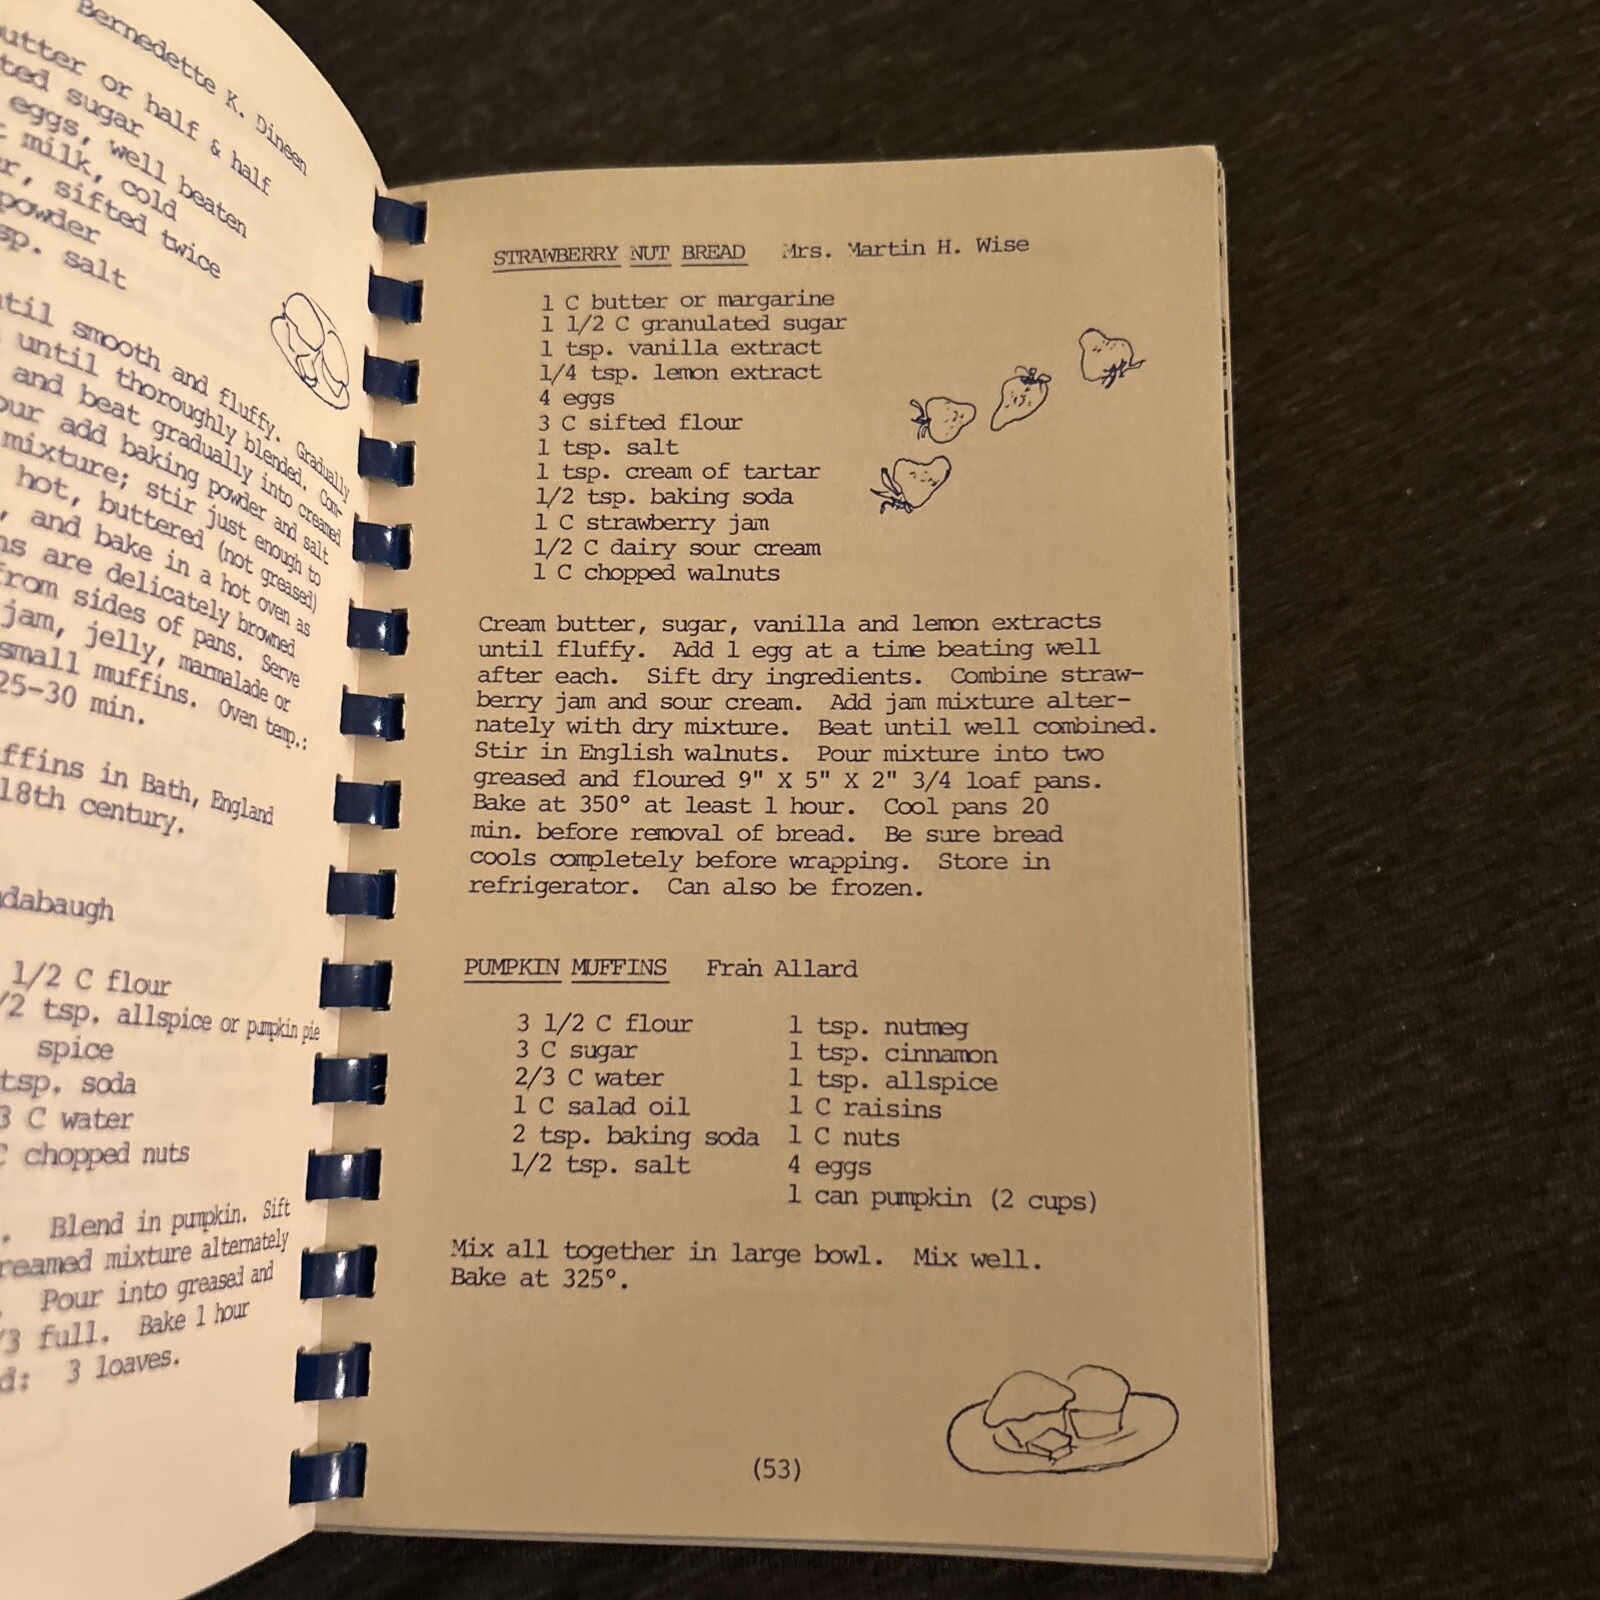 Bernedette K. Dineen
or half & half
sugar
eggs, well beaten
milk, cold
sifted twice
powder
salt
smooth and fluffy. Gradually
until thoroughly blended. Com-
and beat gradually into creamed
add baking powder and salt
mixture; stir just enough to
hot, buttered (not greased)
, and bake in a hot oven as
are delicately browned
from sides of pans. Serve
jam, jelly, marmalade or
small muffins. Oven temp.:
25-30 min.
in Bath, England
18th century.
1/2 C flour
tsp. allspice or pumpkin pie
spice
tsp. soda
C water
chopped nuts
. Blend in pumpkin. Sift
mixture alternately
Pour into greased and
full. Bake 1 hour
3 loaves.
STRAWBERRY NUT BREAD Mrs. Martin H. Wise
1 C butter or margarine
1 1/2 C granulated sugar
1 tsp. vanilla extract
1/4 tsp. lemon extract
4 eggs
3 C sifted flour
1 tsp. salt
1 tsp. cream of tartar
1/2 tsp. baking soda
1 C strawberry jam
1/2 C dairy sour cream
1 C chopped walnuts
Cream butter, sugar, vanilla and lemon extracts
until fluffy. Add 1 egg at a time beating well
after each. Sift dry ingredients. Combine straw-
berry jam and sour cream. Add jam mixture alter-
nately with dry mixture. Beat until well combined.
Stir in English walnuts. Pour mixture into two
greased and floured 9" X 5" X 2" 3/4 loaf pans.
Bake at 350° at least 1 hour. Cool pans 20
min. before removal of bread. Be sure bread
cools completely before wrapping. Store in
refrigerator. Can also be frozen.
PUMPKIN MUFFINS Fran Allard
3 1/2 C flour 1 tsp. nutmeg
3 C sugar 1 tsp. cinnamon
2/3 C water 1 tsp. allspice
1 C salad oil 1 C raisins
2 tsp. baking soda 1 C nuts
1/2 tsp. salt 4 eggs
1 can pumpkin (2 cups)
Mix all together in large bowl. Mix well.
Bake at 325°.
(53)